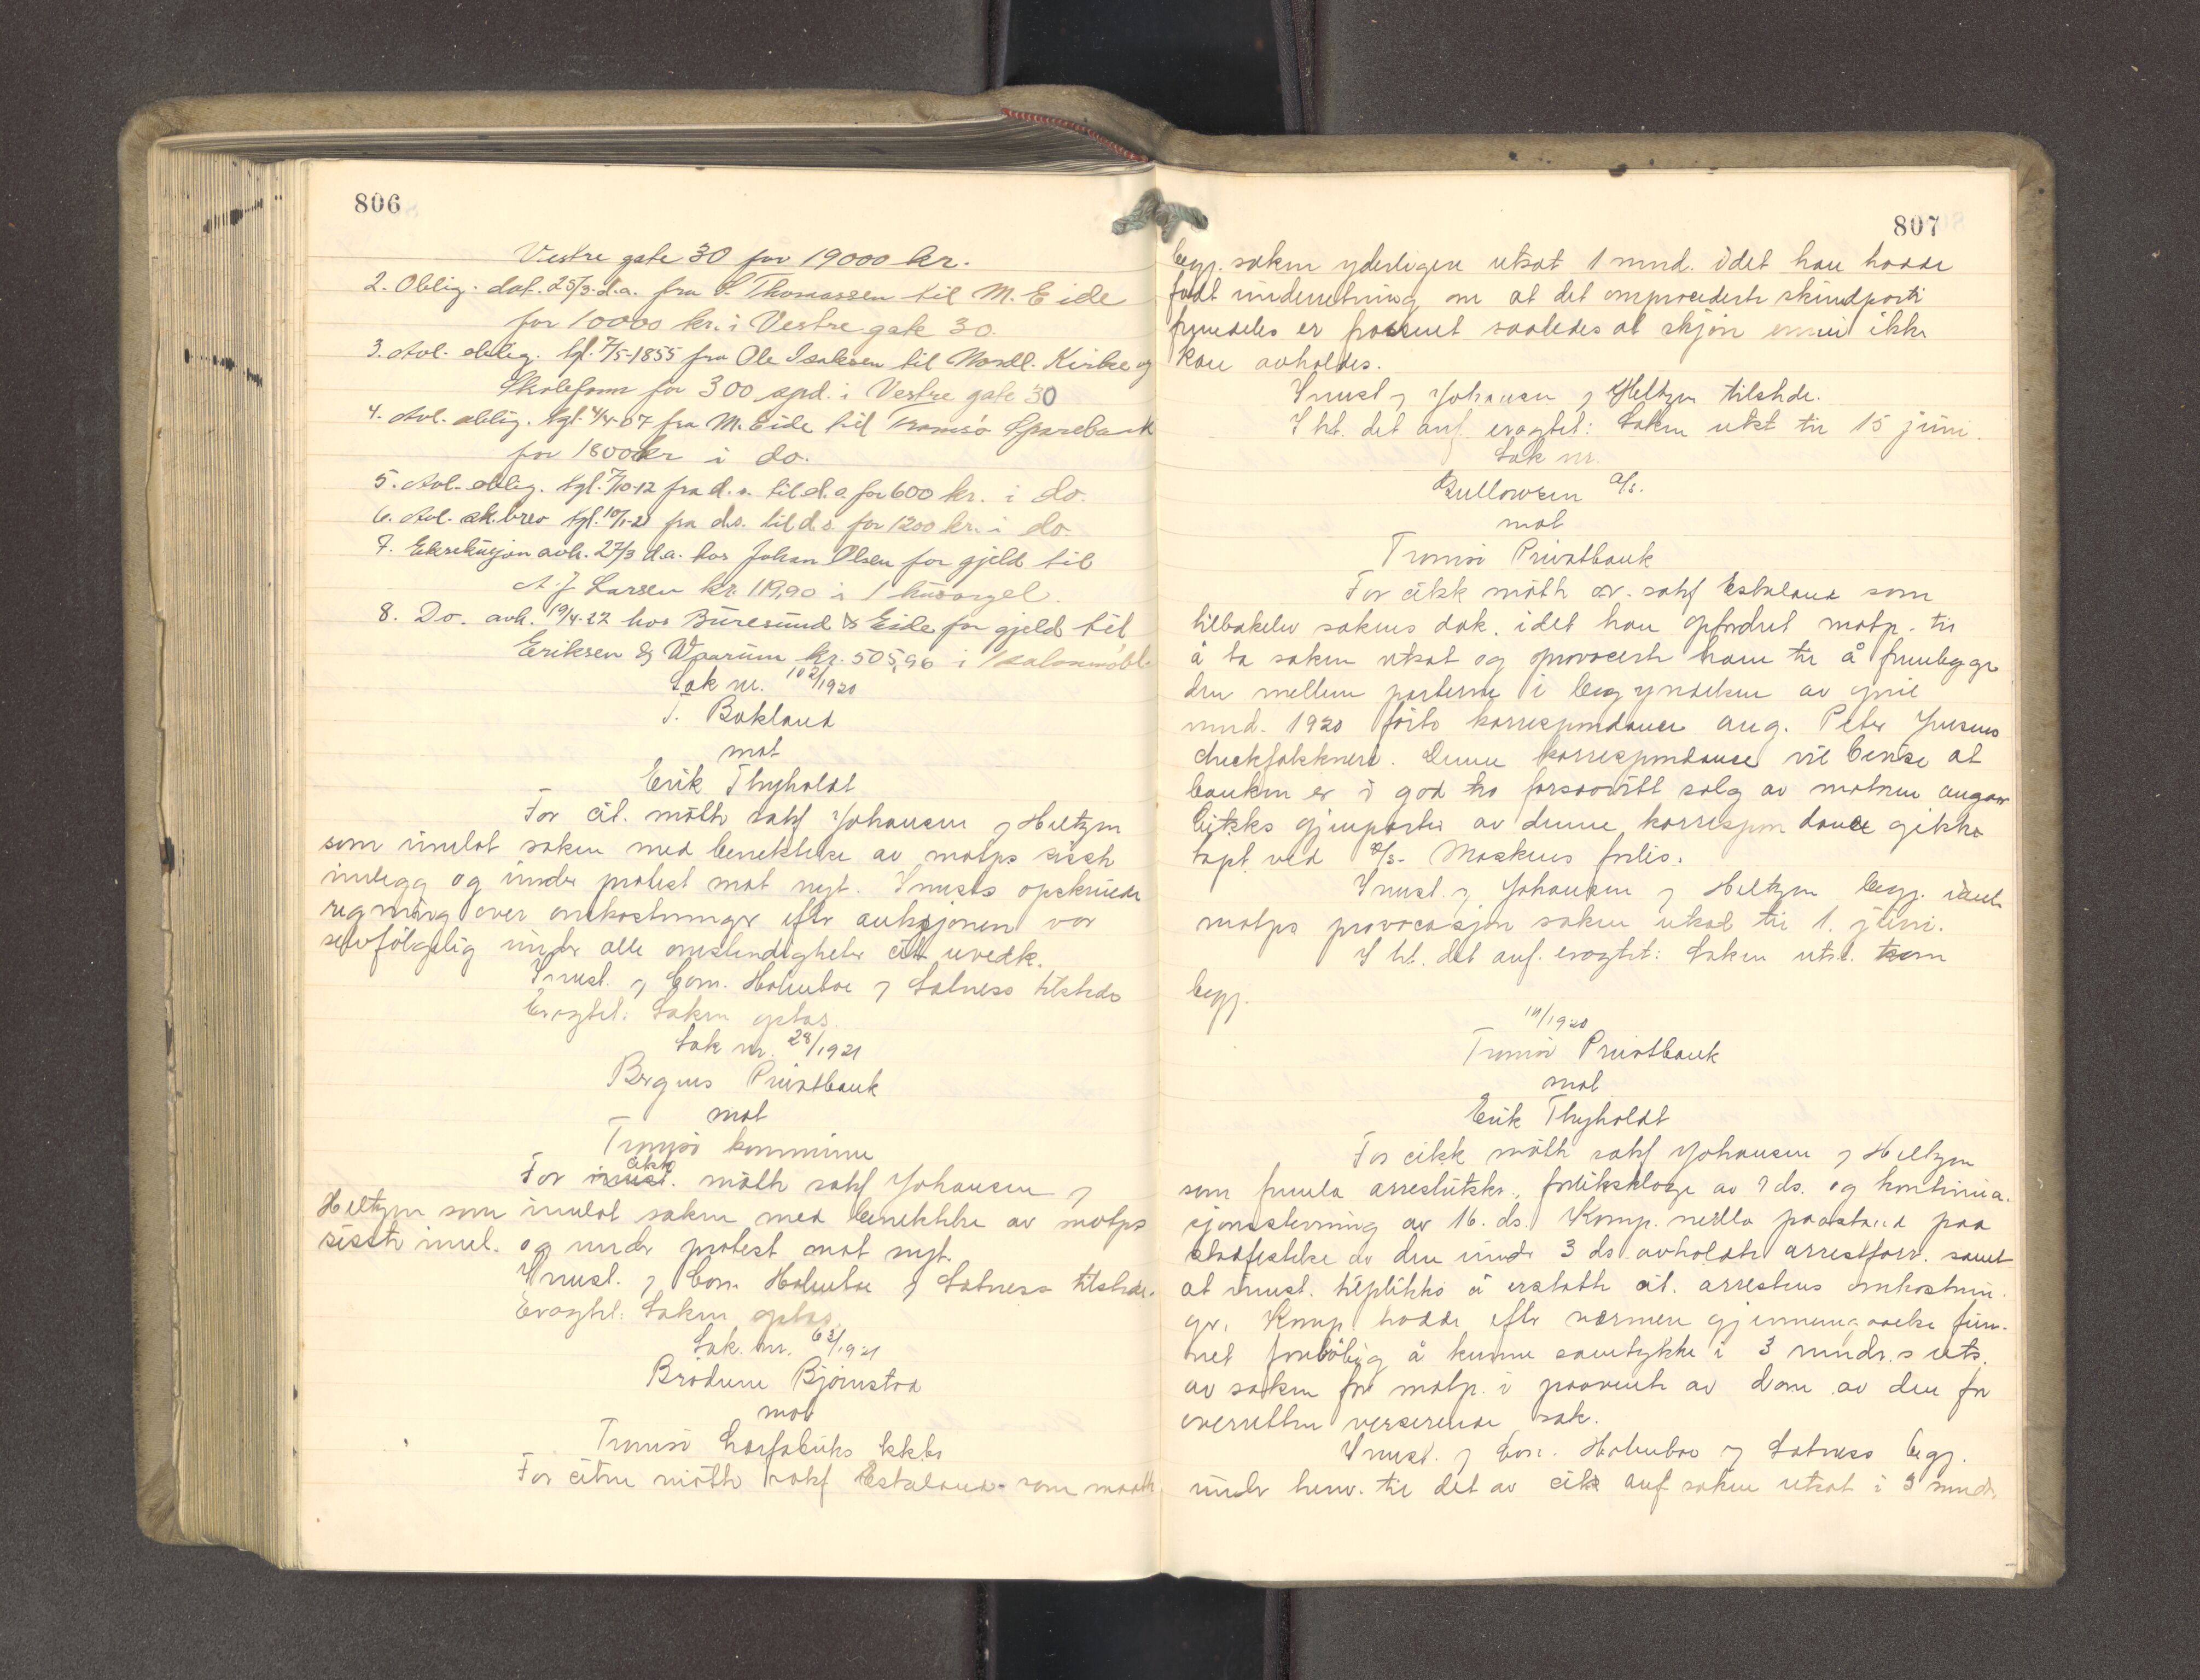 806
Vestre gate 30 for 19000 kr.
2. Oblig. dat. 25/3. d.a. fra S. Thomassen til M. Eide
for 10000 kr. i Vestre gate 30.
3. Avl. oblig. tgl. 7/5-1855 fra Ole Isaksen til Nordl. Kirke og
Skolefonn for 300 spd. i Vestre gate 30
4. Avl. oblig. tgl. 4/4-07 fra M. Eide til Tromsø Sparebank
for 1800 kr i do.
5. Avl. oblig. tgl. 7/10-12 fra d.s. til d.s. for 600 kr. i do.
6. Avl. sk.brev tgl. 10/1-21 fra d.s. til d.s. for 1200 kr. i do.
7. Eksekusjon avh. 27/3 d.a. hos Johan Olsen for gjeld til
A. J. Larsen kr. 119,90 i 1 husorgel.
8. Do. avh. 19/4-22 hos Buresund & Eide for gjeld til
Eriksen & Wparum kr. 505,96 i 1 salonmøbl.
Sak nr. 102/1920
T. Bokland
mot
Erik Thyholdt
For cit. møtte sakf Johansen & Heltzen
som innlot saken med benektelse av motps siste
innlegg og under protest mot nyt. Innsts opskrudde
regning over omkostninger efter auksjonen var
selvfølgelig under alle omstendigheter citt uvedk.
Innst. v Corn. Holmboe & Satness tilstede
Eragtet: Saken optas.
Sak nr. 28/1921
Bergens Privatbank
mot
Tromsø kommune
For citk møtte sakf Johansen &
Heltzen som innlot saken med benektelse av motps
siste innl. og under protest mot nyt.
Innst. v Corn Holmboe & Satness tilstede.
Eragtet: Saken optas
Sak. nr. 63/1921
Brødrene Bjørnstad
mot
Tromsø
For citne møtte sakf Eskeland som maatte
807
begj. saken yderligere utsat 1 mnd. idet han hadde
faat underretning om at det omprocederte skindparti
fremdeles er frosset saaledes at skjøn ennu ikke
kan avholdes.
Innst v Johansen & Heltzen tilstede.
I ht. det anf. eragtet: Saken utst til 15 juni.
Sak nr.
Gullowsen a/s.
mot
Tromsø Privatbank
For citkk møtte or. sakf Eskeland som
tilbakelev sakens dok. idet han opfordret motp. til
å ta saken utsat og provoserte ham til å fremlegge
den mellem parterne i begyndelsen av juni
mnd. 1920 førte korrespondance ang. Peter Jensens
checkfalskneri. Denne korrespondance vil bevise at
banken er i god tro forsaavitt salg av motrene angaar
Citkks gjenparter av denne korrespondance gikk
tapt ved a/s. Moskens forlis.
Innst. v Johansen & Heltzen begj. iht
motps provocasjon saken utsat til 1. juni.
I ht. det anf. eragtet: Saken utst. som
begj.
/1920
Tromsø Privatbank
mot
Erik Thyholdt
For citkk møtte sakf Johansen & Heltzen
som freml arrestutskr., forliksklage av 9 ds. og kontinua-
sjonsstevning av 16. ds. Komp. nedla paastand paa
stadfestelse av den under 3 ds. avholdte arrestforr. samt
at innst. tilpliktes å erstatte cit. arrestens omkostnin-
ger. Komp. hadde efter nærmere gjennemgaaelse fun-
net foreløbig å kunne samtykke i 3 mndr.s uts.
av saken for motp. i paavente av dom av den for
overretten verserende sak.
Innst. v Corn. Holmboe & Satness begj.
under henv. til det av citk anf saken utsat i 3 mndr.